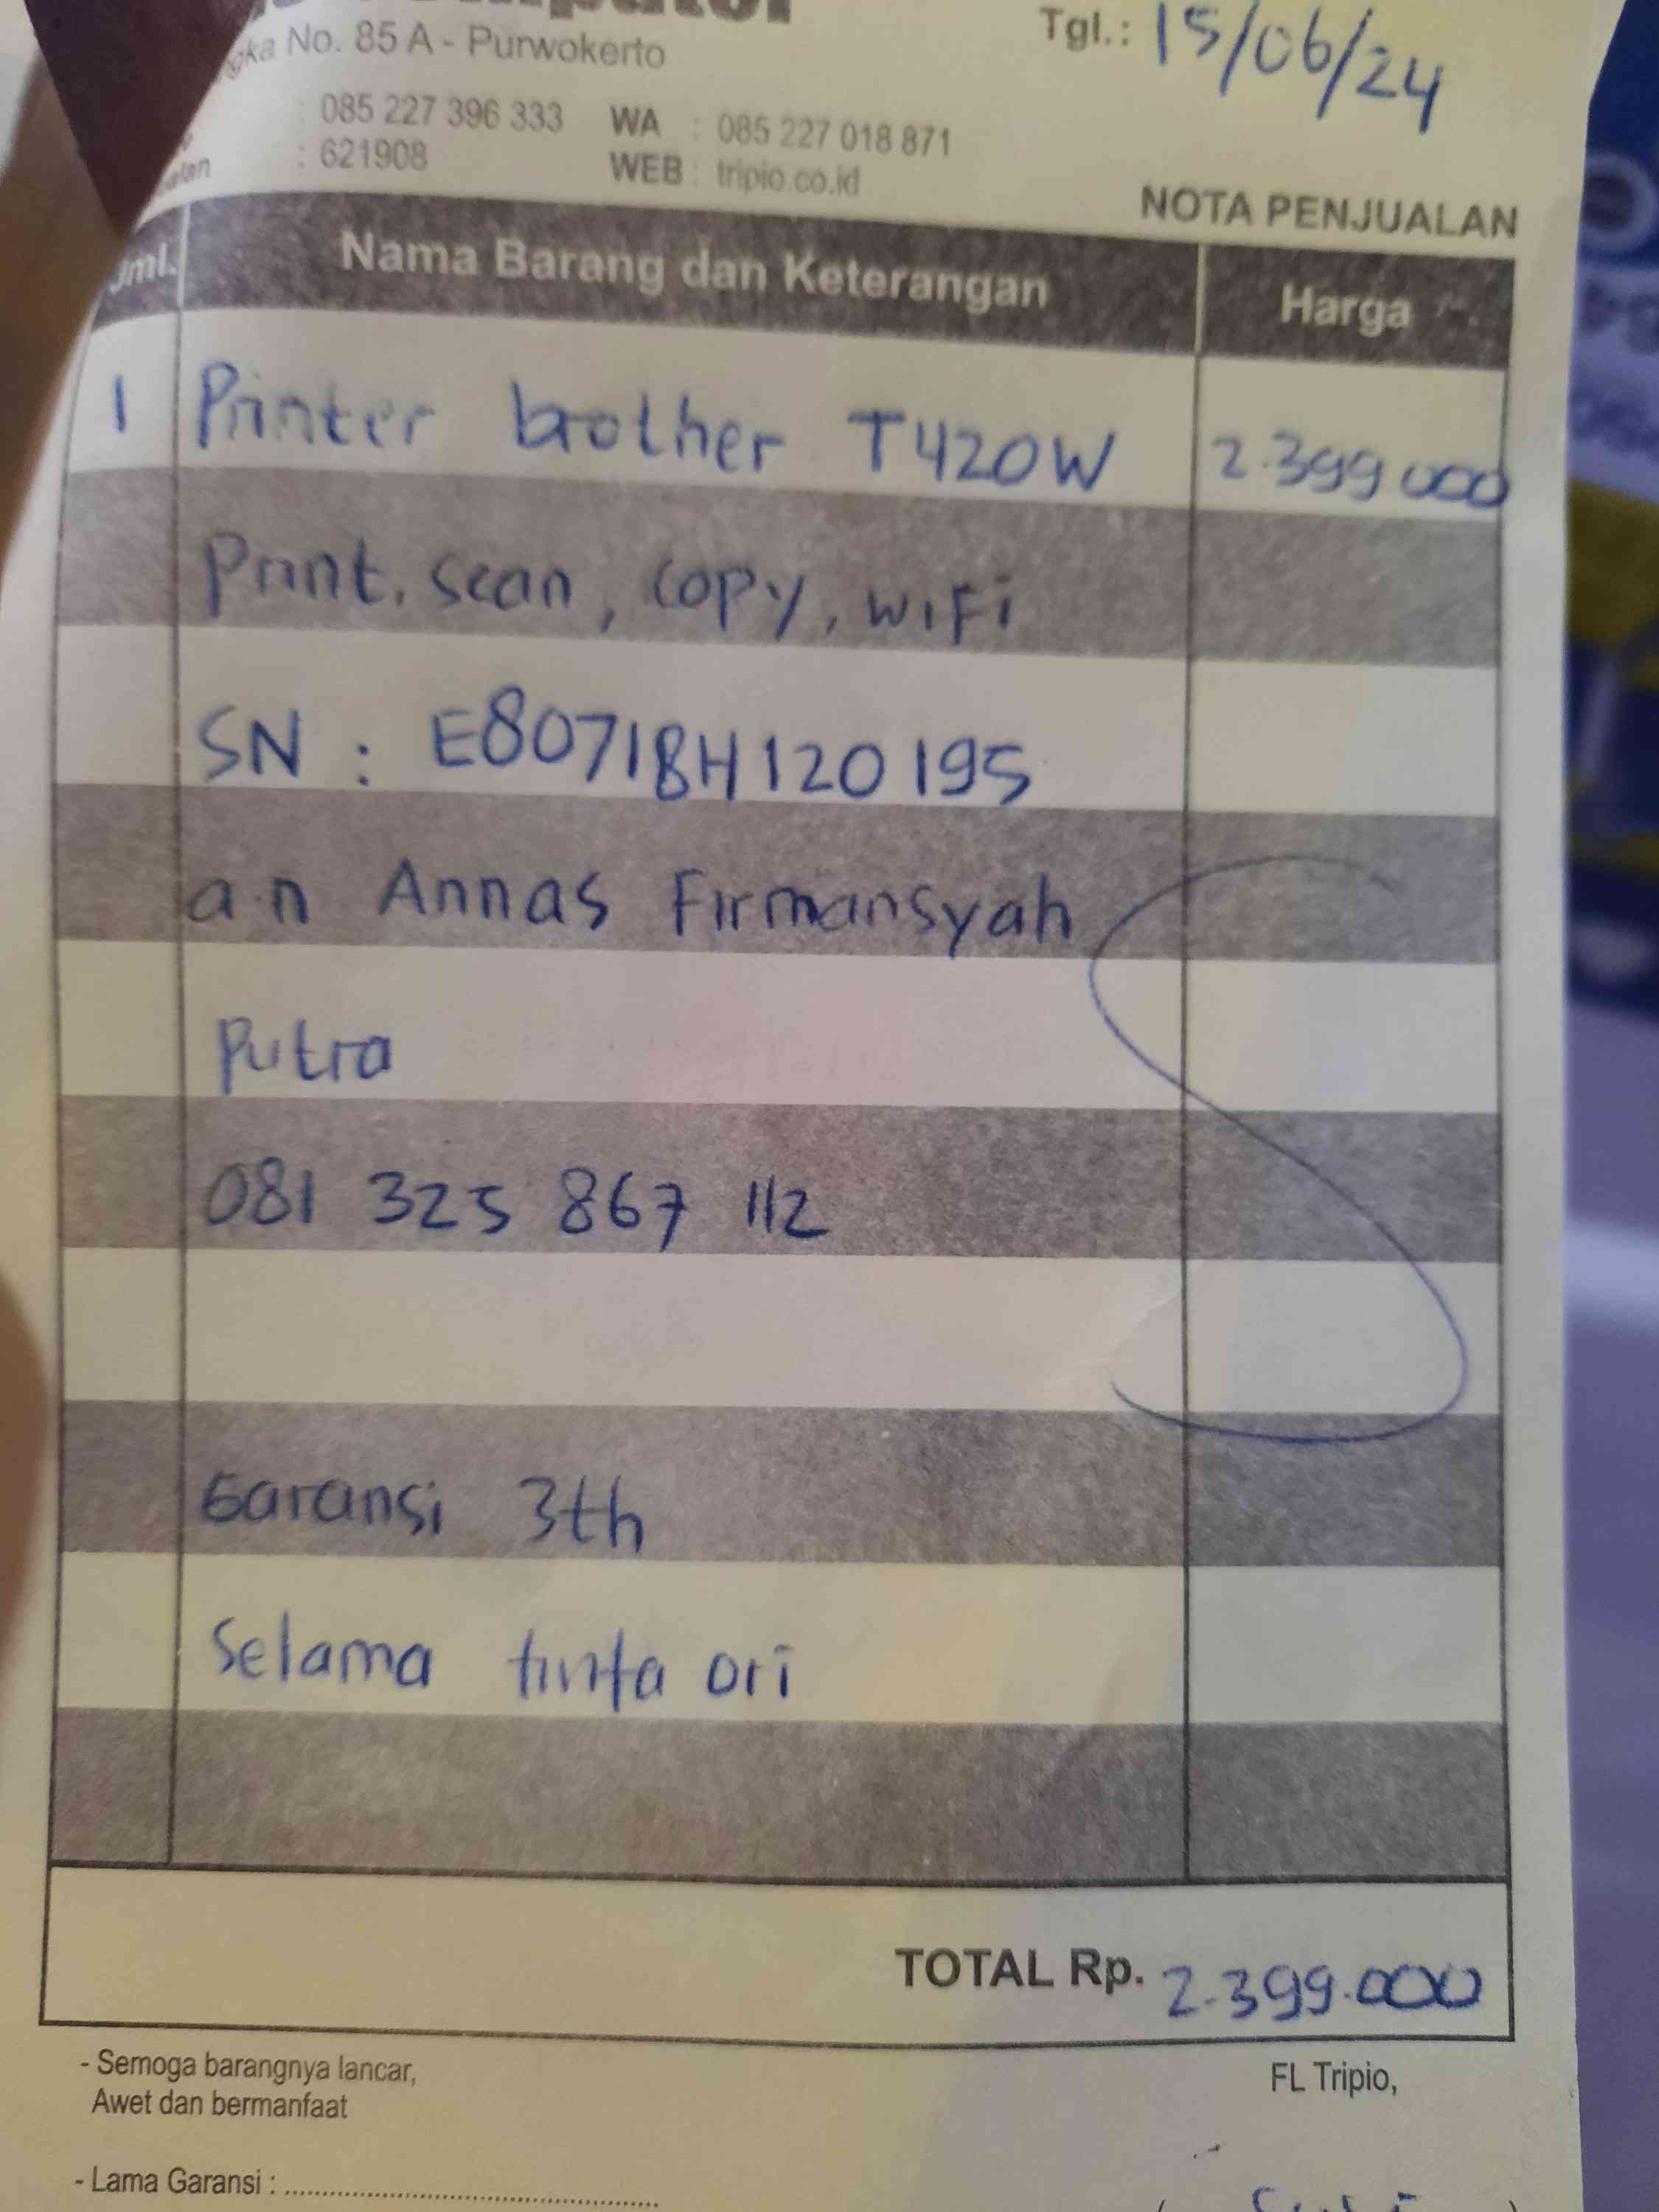 Tgl.: 15/06/24
No. 85 A - Purwokerto
: 085 227 396 333 WA : 085 227 018 871
: 621908 WEB : tripio.co.id
NOTA PENJUALAN
Jml. Nama Barang dan Keterangan Harga
1 Printer brother T420W 2.399 000
Print. scan, copy, wiFi
SN : E80718H120195
a.n Annas Firmansyah
Putra
081 325 867 112
Garansi 3th
Selama tinta ori
TOTAL Rp. 2.399.000
- Semoga barangnya lancar,
Awet dan bermanfaat
FL Tripio,
- Lama Garansi : ..............................................